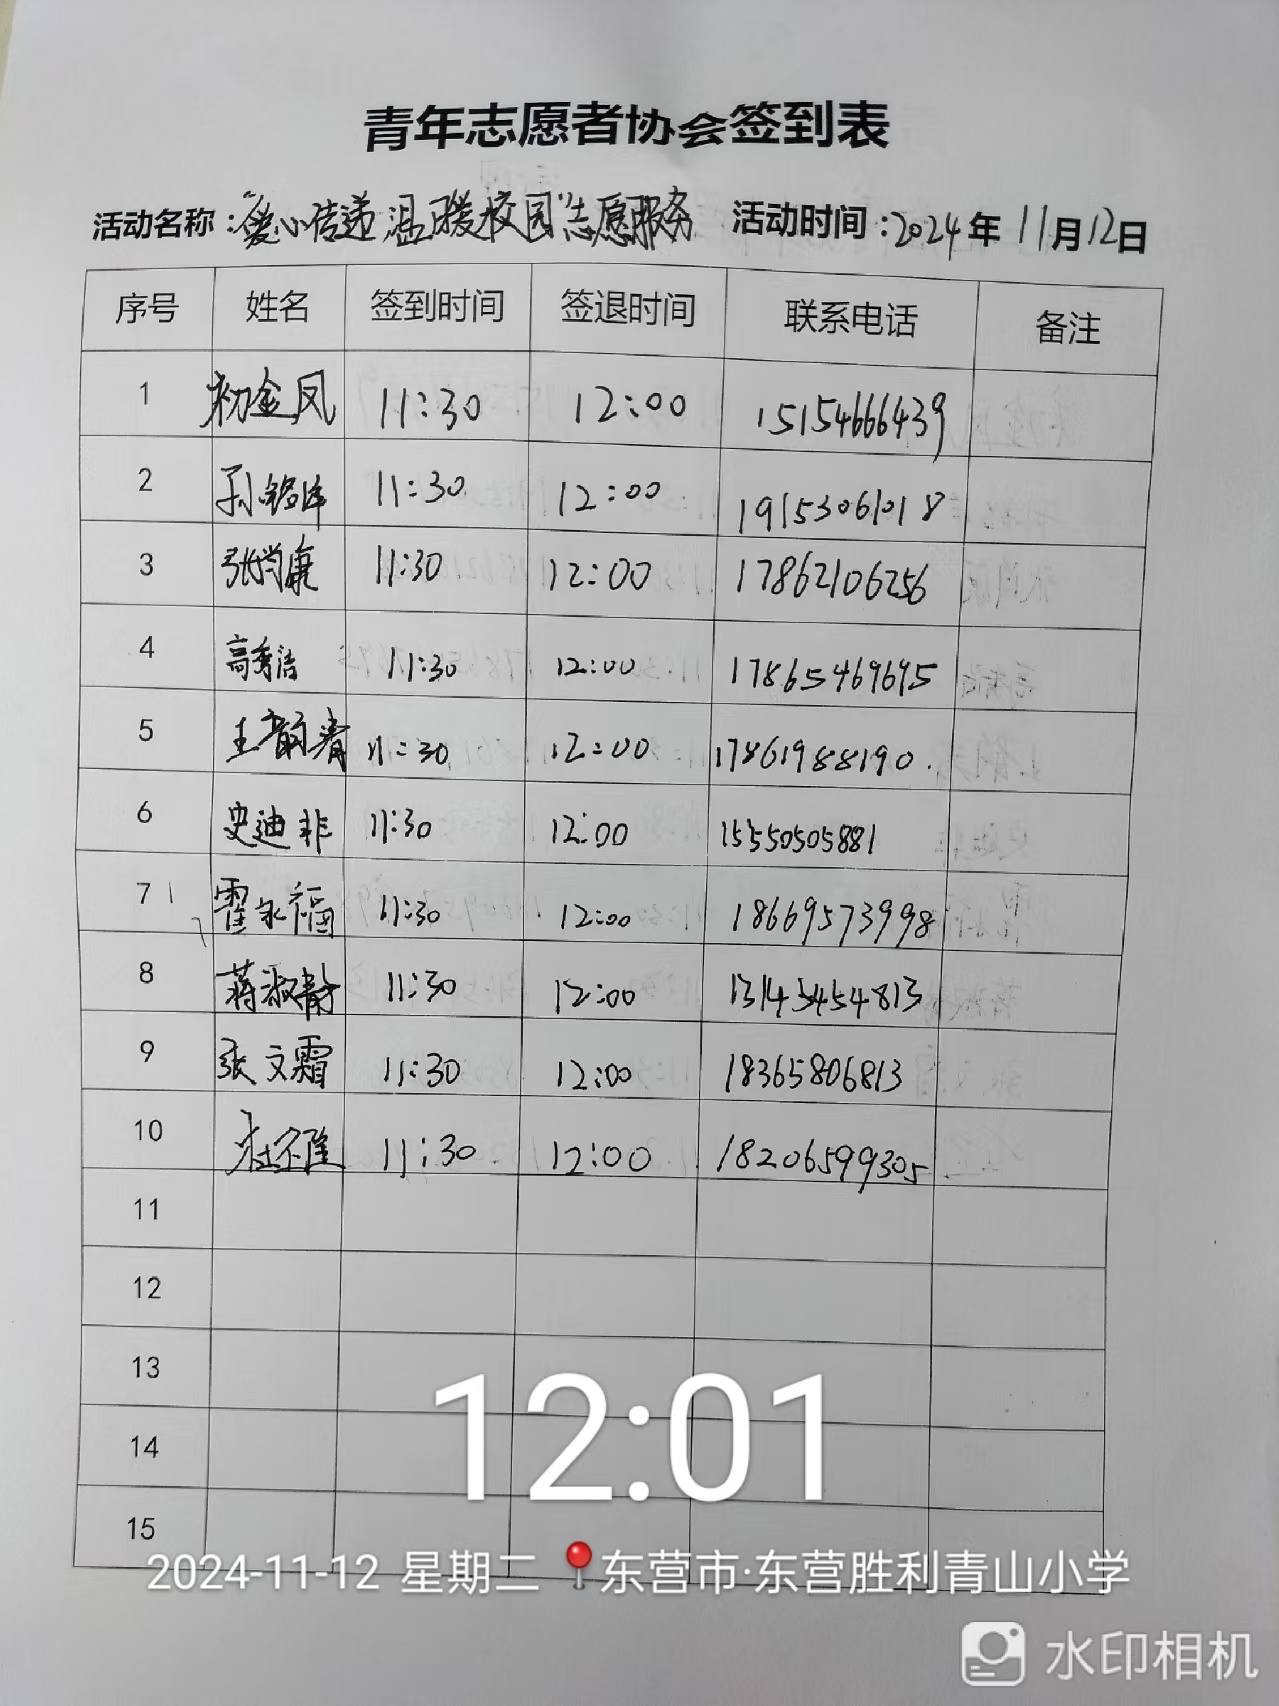 青年志愿者协会签到表
活动名称:"爱心传递 温暖校园"志愿服务 活动时间:2024年11月12日
序号 姓名 签到时间 签退时间 联系电话 备注
1 初金凤 11:30 12:00 15154666439
2 孙铭泽 11:30 12:00 19153061018
3 张尚康 11:30 12:00 17862106256
4 高秀洁 11:30 12:00 17865469695
5 王韵青 11:30 12:00 17861988190.
6 史迪非 11:30 12:00 15550505881
7 霍永福 11:30 12:00 18669573998
8 蒋淑静 11:30 12:00 13145454813
9 张文霜 11:30 12:00 18365806813
10 杜 11:30 12:00 18206599305
11
12
13
12:01
14
15
2024-11-12 星期二 东营市·东营胜利青山小学
水印相机